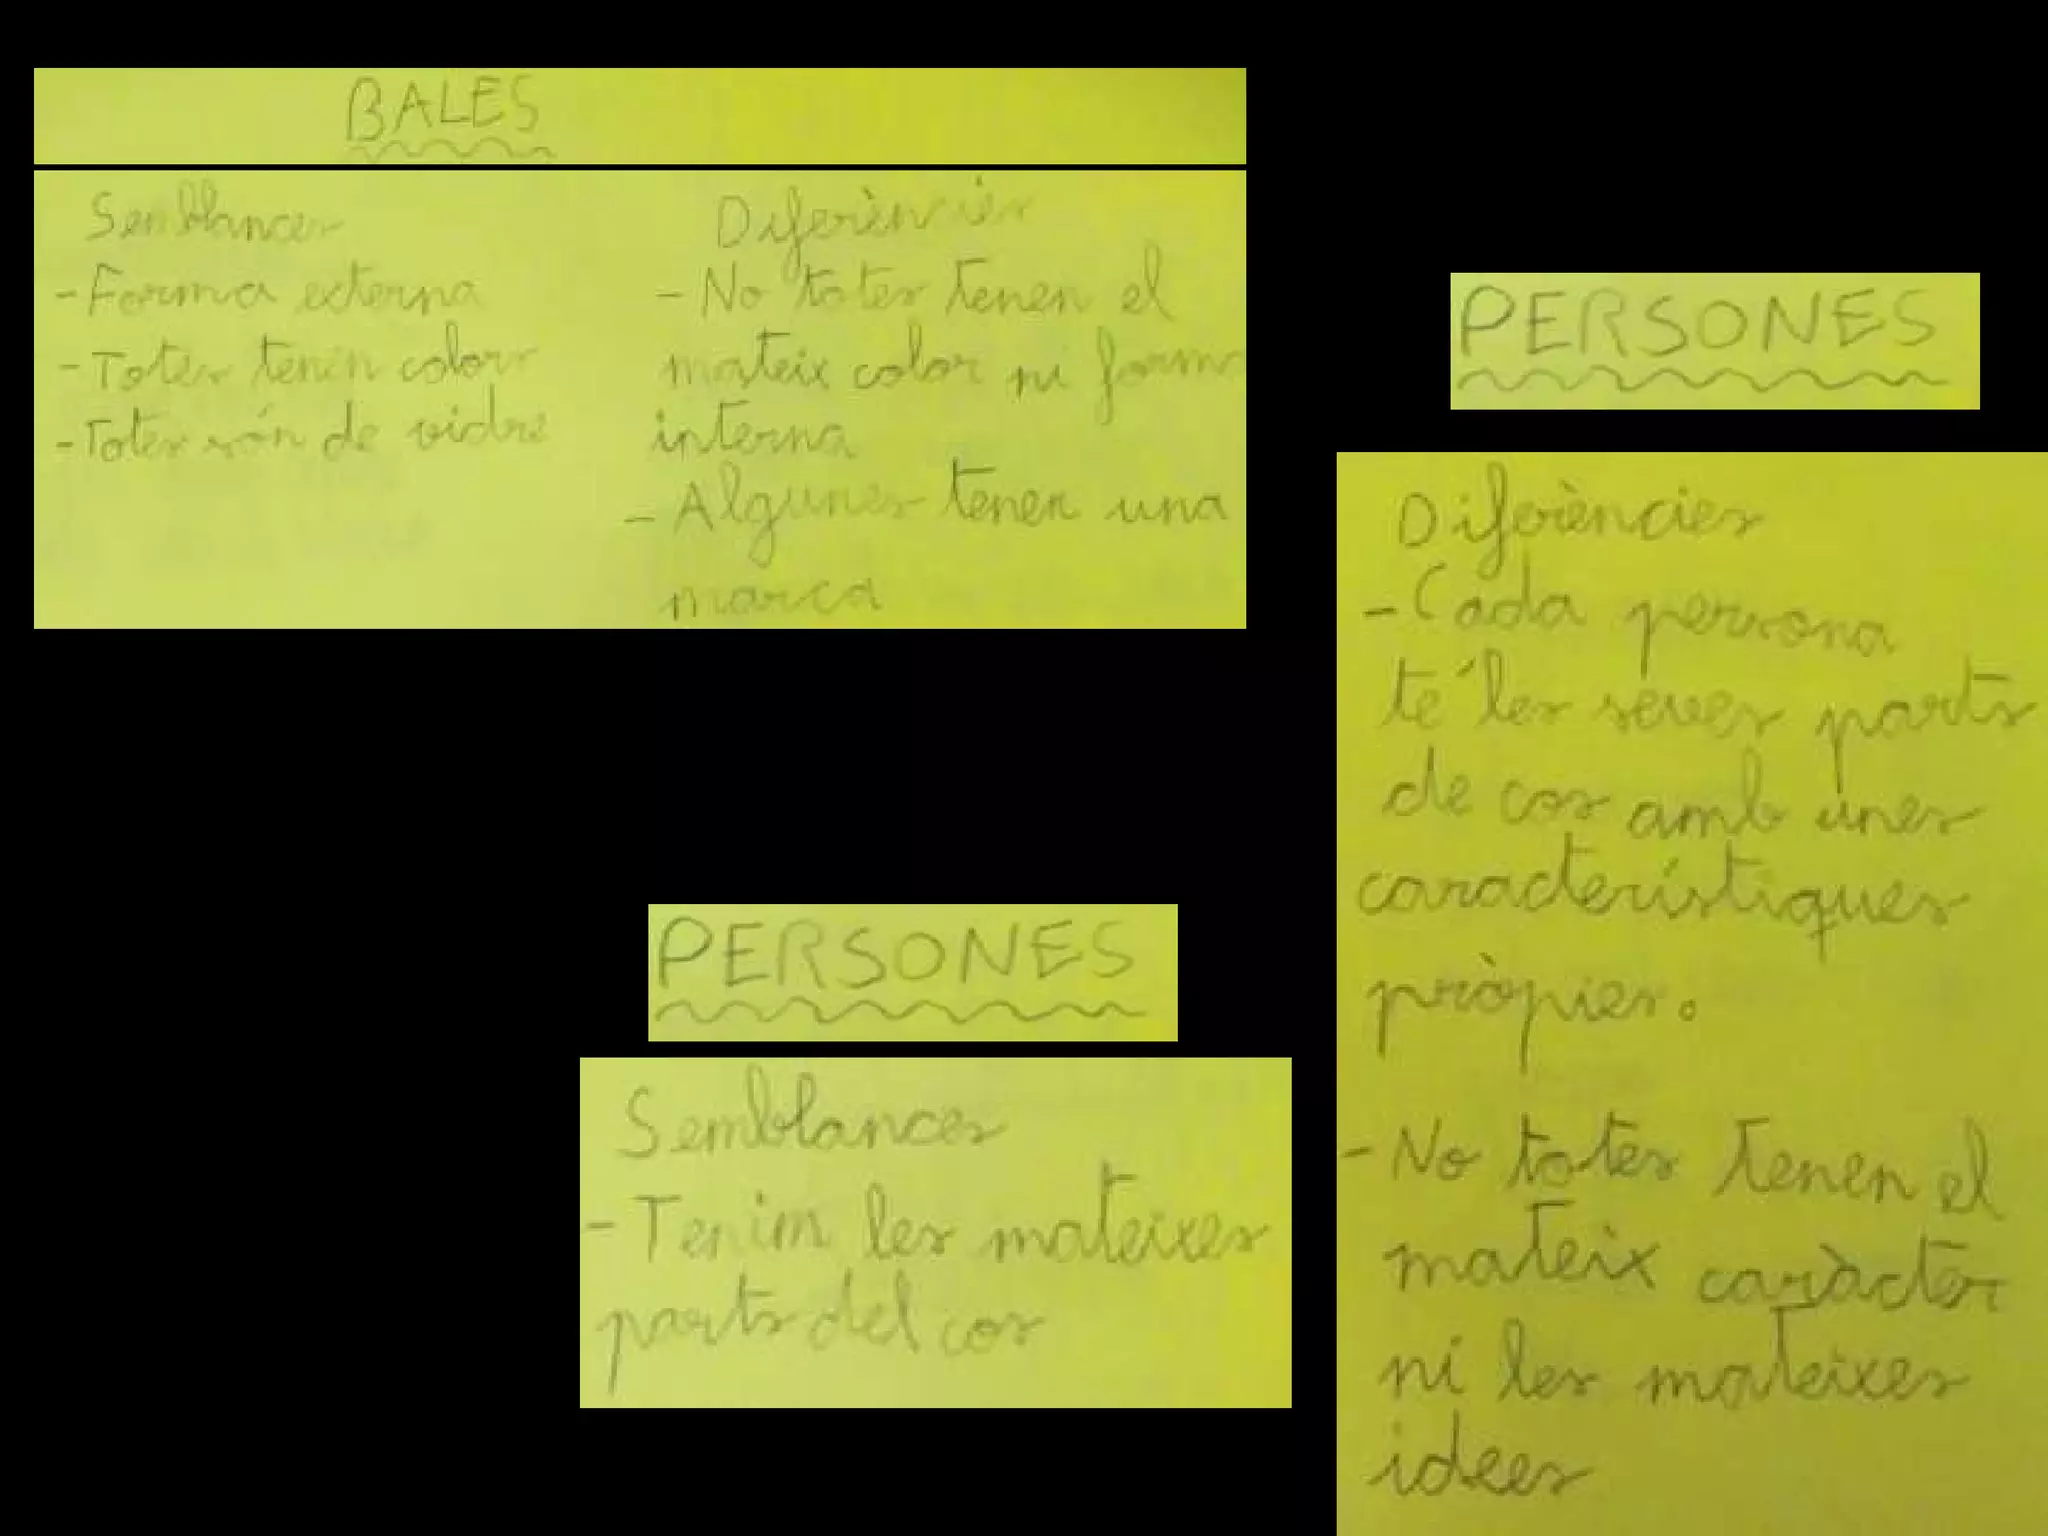 BALES
Semblances
- Forma externa
- Totes tenen colors
- Totes són de vidre
Diferències
- No totes tenen el
mateix color ni forma
interna
- Algunes tenen una
marca
PERSONES
Semblances
- Tenim les mateixes
parts del cos
PERSONES
Diferències
- Cada persona
té les seves parts
de cos amb unes
característiques
pròpies.
- No totes tenen el
mateix caràcter
ni les mateixes
idees